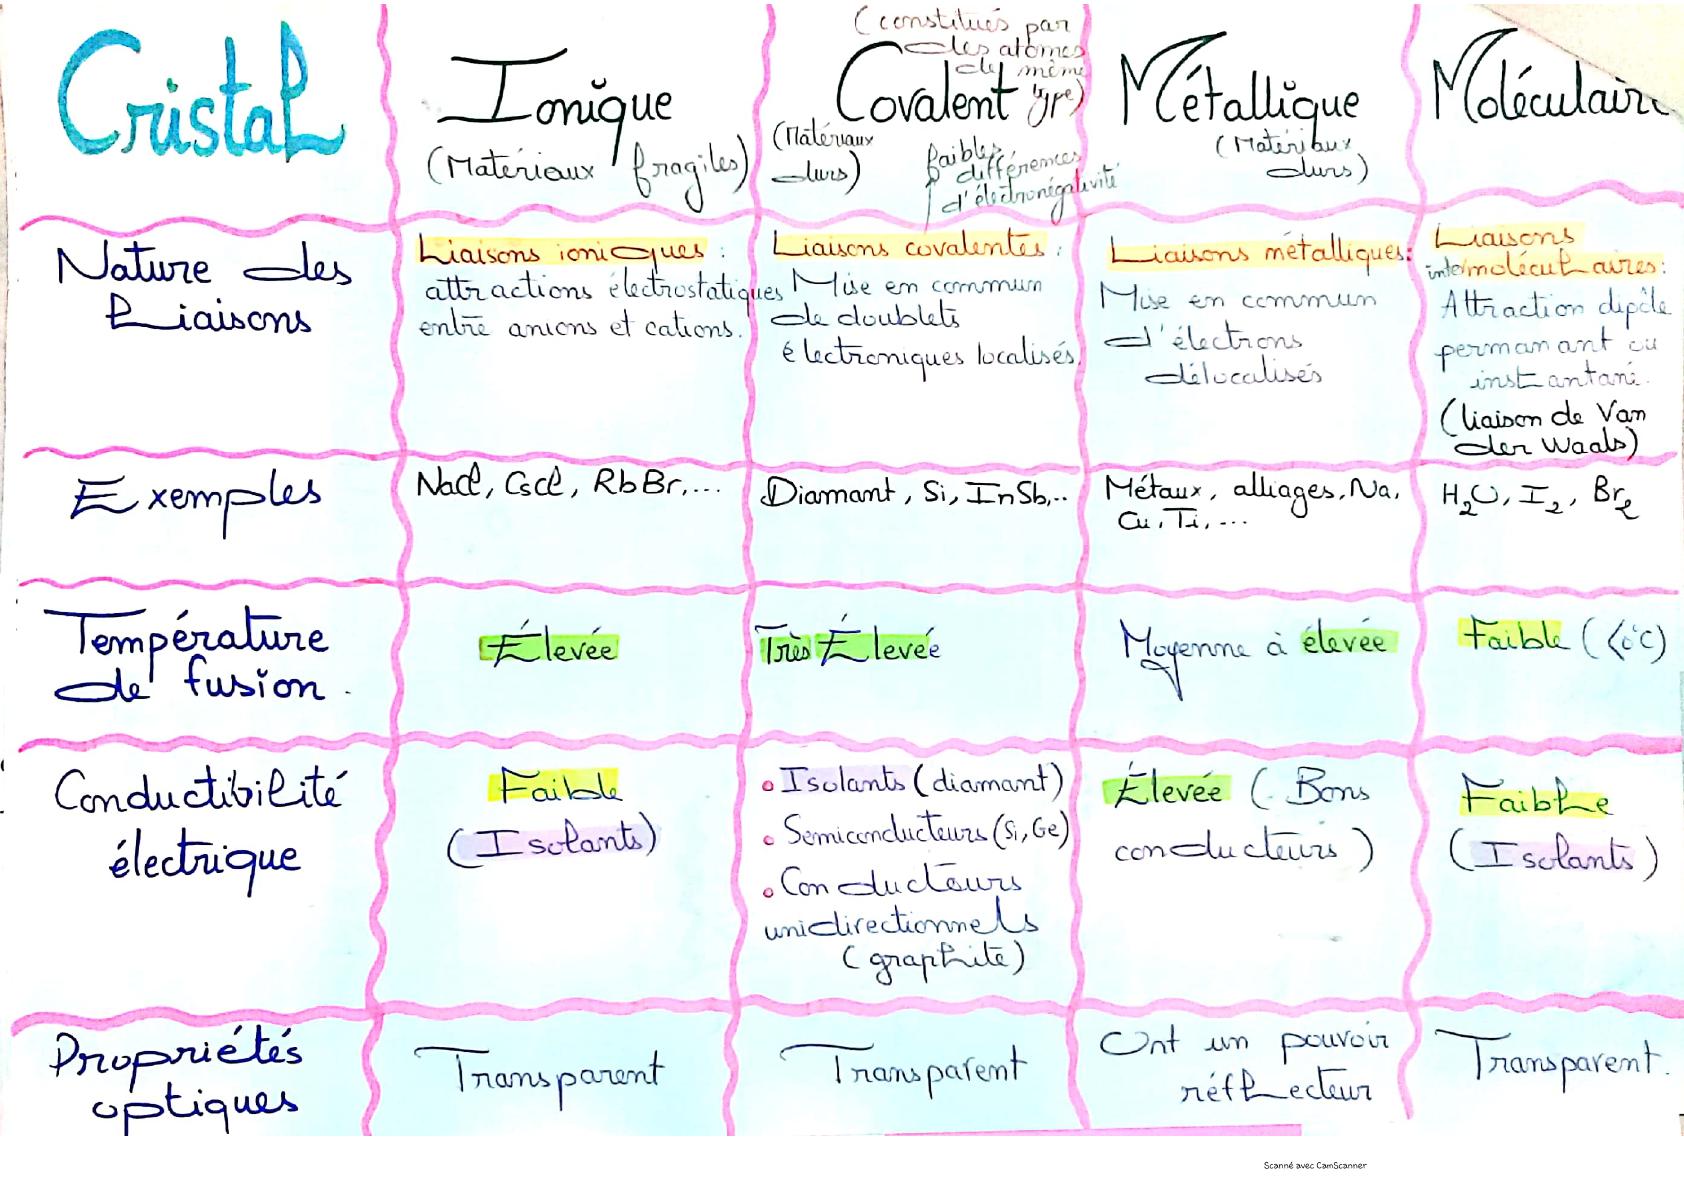 Cristal
Ionique
(Matériaux fragiles)
(constitués par
des atomes
de même
type)
Covalent
(Matériaux
durs)
faibles
différences
d'électronégativité
Métallique
(Matériaux
durs)
Moléculaire
Nature des
Liaisons
Liaisons ioniques :
attractions électrostatiques
entre anions et cations.
Liaisons covalentes :
Mise en commun
de doublets
électroniques localisés.
Liaisons métalliques:
Mise en commun
d'électrons
délocalisés
Liaisons
intermoléculaires:
Attraction dipôle
permanant ou
instantané.
(liaison de Van
der Waals)
Exemples
NaCl, CsCl, RbBr,...
Diamant, Si, InSb,..
Métaux, alliages, Na,
Cu, Ti, ...
H2O, I2, Br2
Température
de fusion.
Élevée
Très Élevée
Moyenne à élevée
Faible (<0°C)
Conductibilité
électrique
Faible
(Isolants)
• Isolants (diamant)
• Semiconducteurs (Si, Ge)
• Conducteurs
unidirectionnels
(graphite)
Élevée (Bons
conducteurs)
Faible
(Isolants)
Propriétés
optiques
Transparent
Transparent
Ont un pouvoir
réflecteur
Transparent.
Scanné avec CamScanner